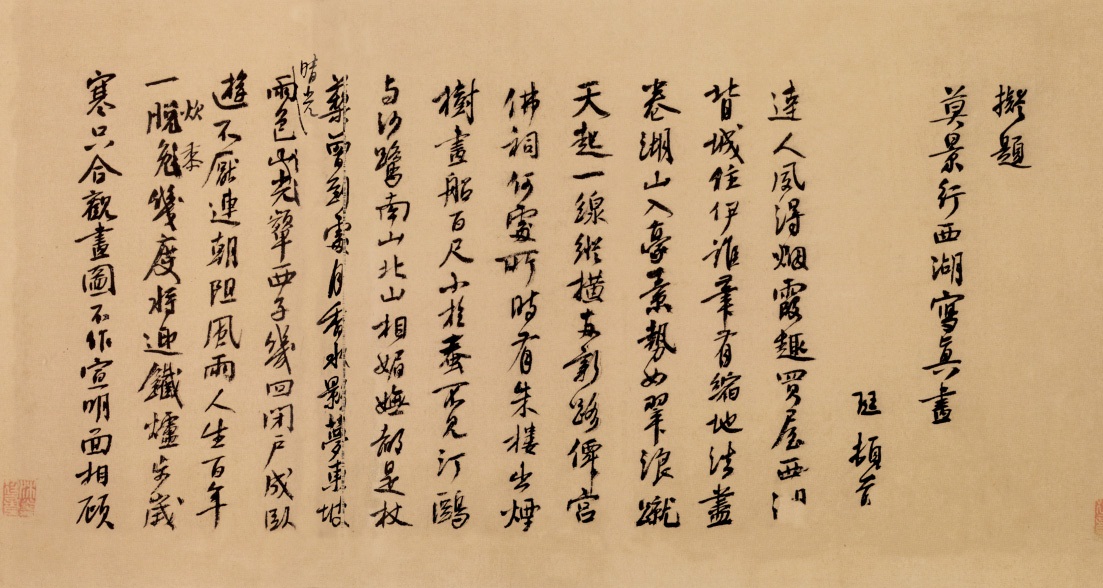 擬題
莫景行西湖寫真畫
珽頓首
達人夙得烟霞趣買屋西湖
背城住伊誰筆有縮地法盡
卷湖山入豪素勢如翠浪蹴
天起一線縱橫安新路僊宮
佛祠何處所時有朱樓出煙
樹畫船百尺小於蚕不見汀鷗
与沙鷺南山北山相媚嫵都是杖
藜曾到處月香水影夢東坡
晴光
雨色山光顰西子幾回閉戶成臥
遊不厭連朝阻風雨人生百年
炊黍
一脫兔幾度將迎鐵爐步歲
寒只合觀畫圖不作宣明面相顧